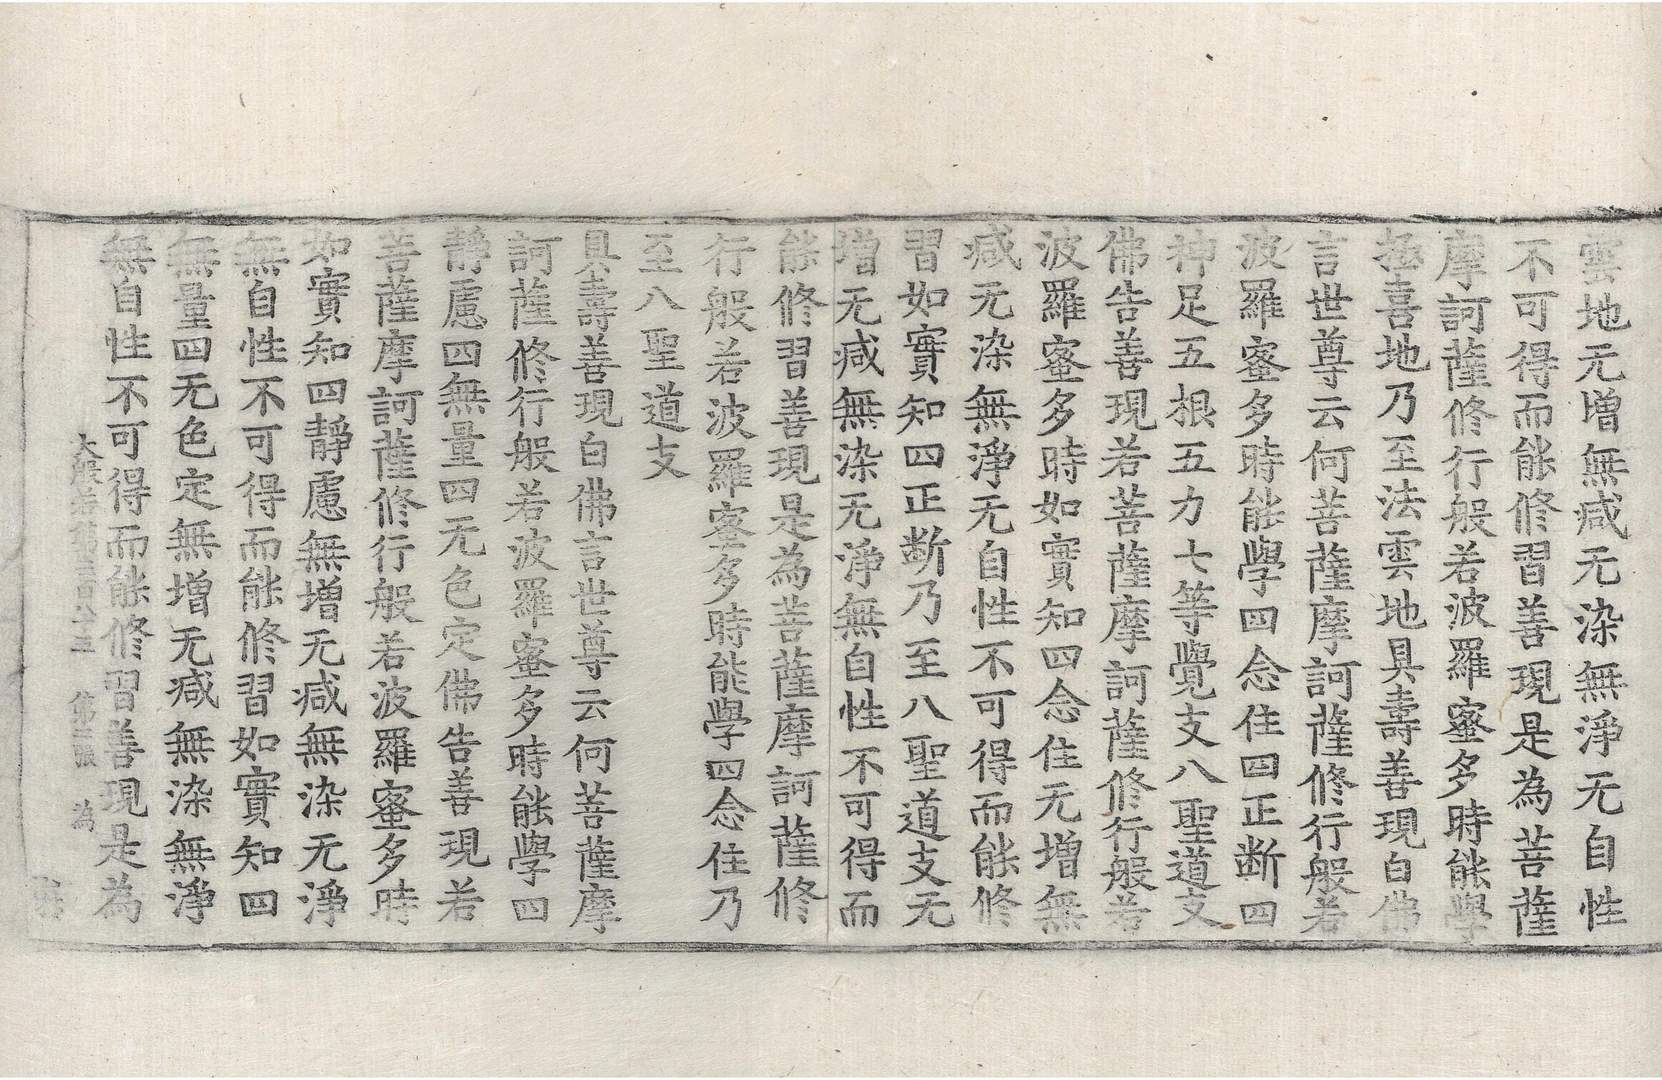 雲地无增無减无染無淨无自性
不可得而能修習善現是為菩薩
摩訶薩修行般若波羅蜜多時能學
極喜地乃至法雲地具壽善現白佛
言世尊云何菩薩摩訶薩修行般若
波羅蜜多時能學四念住四正断四
神足五根五力七等覺支八聖道支
佛告善現若菩薩摩訶薩修行般若
波羅蜜多時如實知四念住无增無
减无染無淨无自性不可得而能修
習如實知四正断乃至八聖道支无
增无减無染无淨無自性不可得而
能修習善現是為菩薩摩訶薩修
行般若波羅蜜多時能學四念住乃
至八聖道支
具壽善現白佛言世尊云何菩薩摩
訶薩修行般若波羅蜜多時能學四
靜慮四無量四无色定佛告善現若
菩薩摩訶薩修行般若波羅蜜多時
如實知四靜慮無增无减無染无淨
無自性不可得而能修習如實知四
無量四无色定無增无减無染無淨
無自性不可得而能修習善現是為
大般若第三百六十三 第三張 為